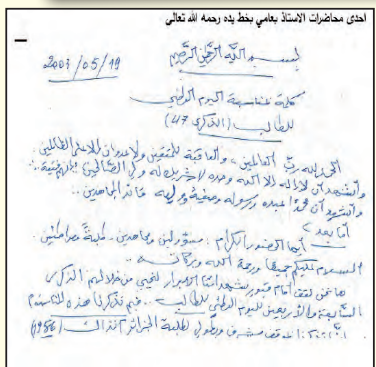 احدى محاضرات الاستاذ بعامي بخط يده رحمه الله تعالى
بسم الله الرحمن الرحيم
2003/05/19
كلمة بمناسبة اليوم الوطني
للطالب (الذكرى 47)
الحمد لله ربّ العالمين، والعاقبة للمتقين ولا عدوان إلا على الظالمين.
وأشهد أن لا إله إلا الله وحده لا شريك له وليّ الصالحين
وأشهد أن محمدا عبده ورسوله وصفيّه قائد المجاهدين..
أما بعد >
أيها الحضور الكرام: مسؤولين ومجاهدين. طلبة ومواطنين.
السلام عليكم جميعا ورحمة الله وبركاته..
ها نحن نقف أمام قبور شهدائنا الأبرار لنحيي من خلالهم الذكرى
السابعة والأربعين لليوم الوطني للطالب.. فبم تذكرنا هذه المناسبة
الموقف مشرف وبطولي لطلبة الجزائر آنذاك (1956)